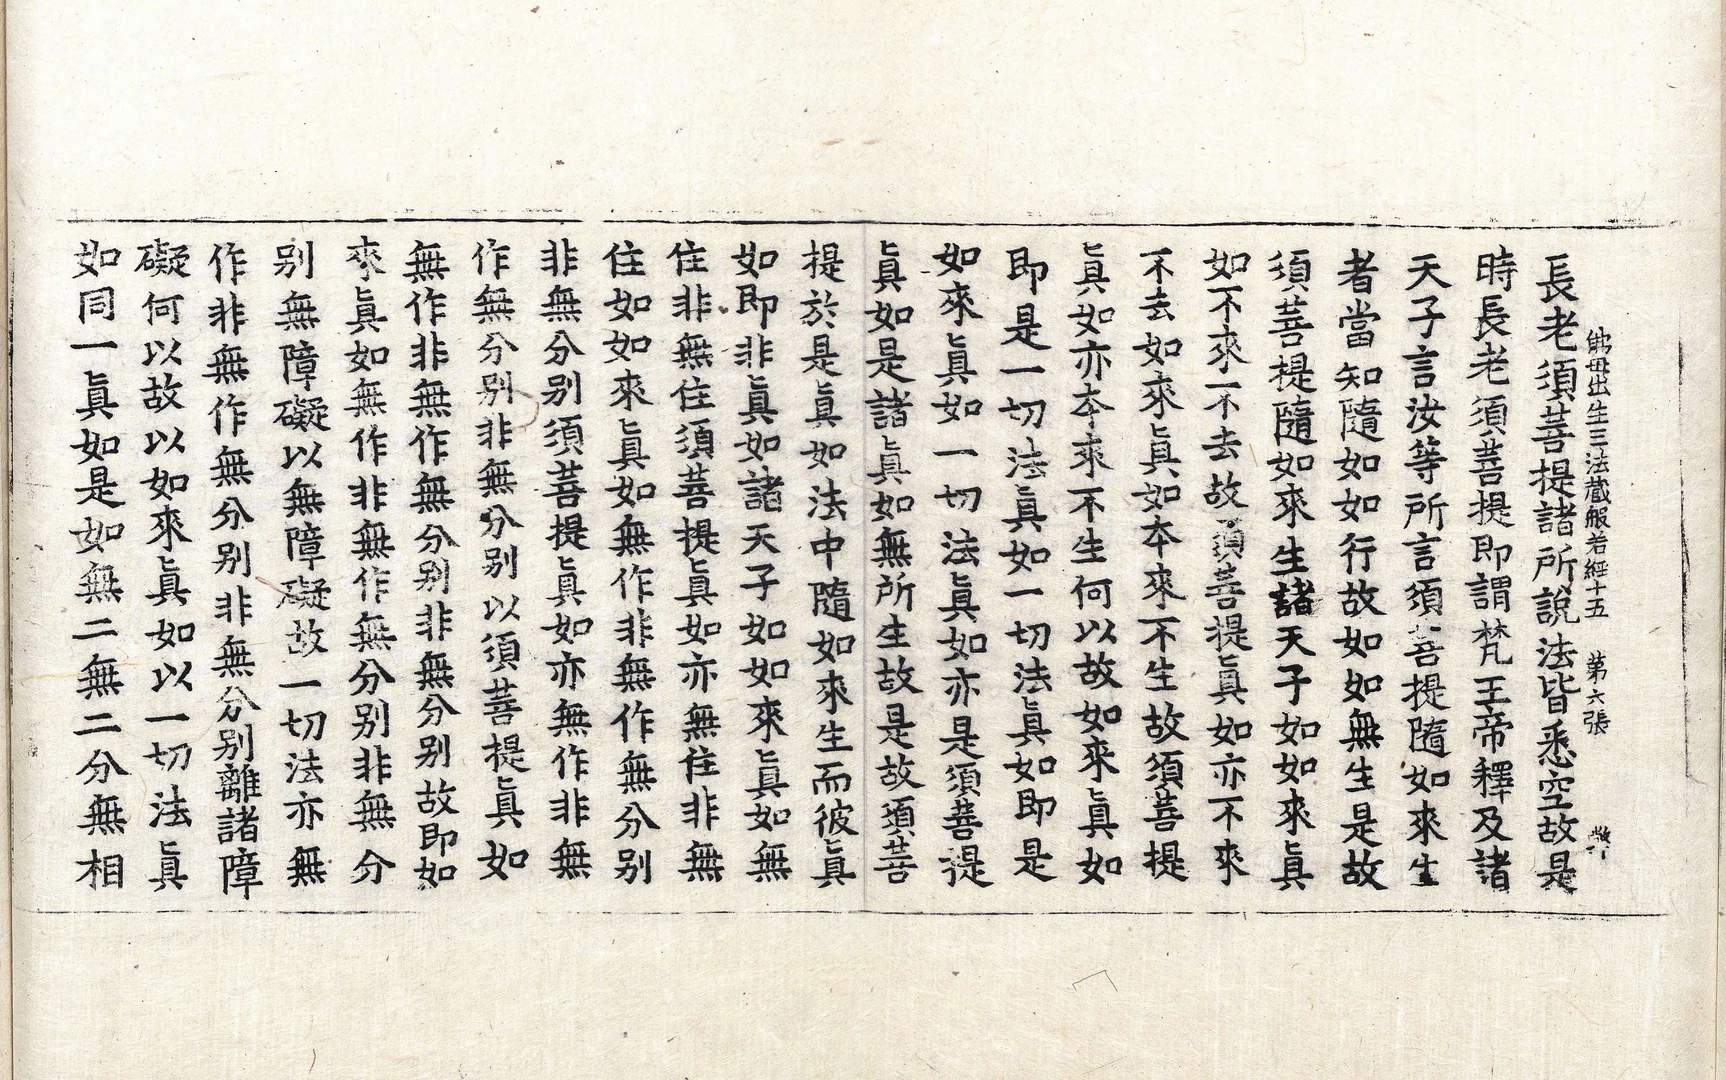 佛母出生三法藏般若經十五　第六張
長老須菩提諸所說法皆悉空故是
時長老須菩提即謂梵王帝釋及諸
天子言汝等所言須菩提隨如來生
者當知隨如如行故如如無生是故
須菩提隨如來生諸天子如如來眞
如不來不去故須菩提眞如亦不來
不去如來眞如本來不生故須菩提
眞如亦本來不生何以故如來眞如
即是一切法眞如一切法眞如即是
如來眞如一切法眞如亦是須菩提
眞如是諸眞如無所生故是故須菩
提於是眞如法中隨如來生而彼眞
如即非眞如諸天子如如來眞如無
住非無住須菩提眞如亦無住非無
住如如來眞如無作非無作無分別
非無分別須菩提眞如亦無作非無
作無分別非無分別以須菩提眞如
無作非無作無分別非無分別故即如
來眞如無作非無作無分別非無分
別無障礙以無障礙故一切法亦無
作非無作無分別非無分別離諸障
礙何以故以如來眞如以一切法眞
如同一眞如是如無二無二分無相